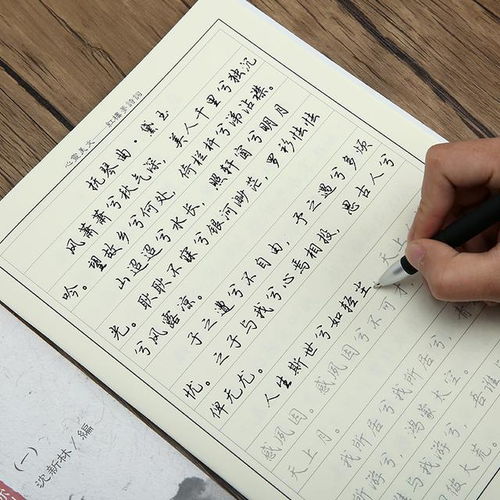 心靈美文 · 紅樓夢詩詞
抚琴曲·黛玉
风萧萧兮秋气深， 美人千里兮独沉
吟。望故乡兮何处， 倚栏杆兮涕沾襟。
山迢迢兮水长， 照轩窗兮明月
光。耿耿不寐兮银河渺茫， 罗衫怯怯
兮风露凉。
子之遭兮不自由， 予之遇兮多烦
忧。之子与我兮心焉相投， 思古人兮
俾无尤。
人生斯世兮如轻尘， 天上
感夙因。感夙因兮不可
天上月。
我所居兮
鸿蒙太空。
吾谁
(一)
沈新林/編